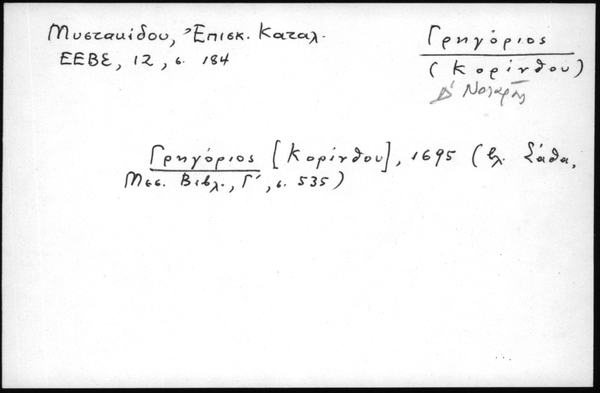 Μυστακίδου, Ἐπισκ. Καταλ.
ΕΕΒΣ, 12, σ. 184
Γρηγόριος
(Κορίνθου)
Δ' Νοταρᾶς
Γρηγόριος [Κορίνθου], 1695 (βλ. Σάθα,
Μεσ. Βιβλ., Γ', σ. 535)